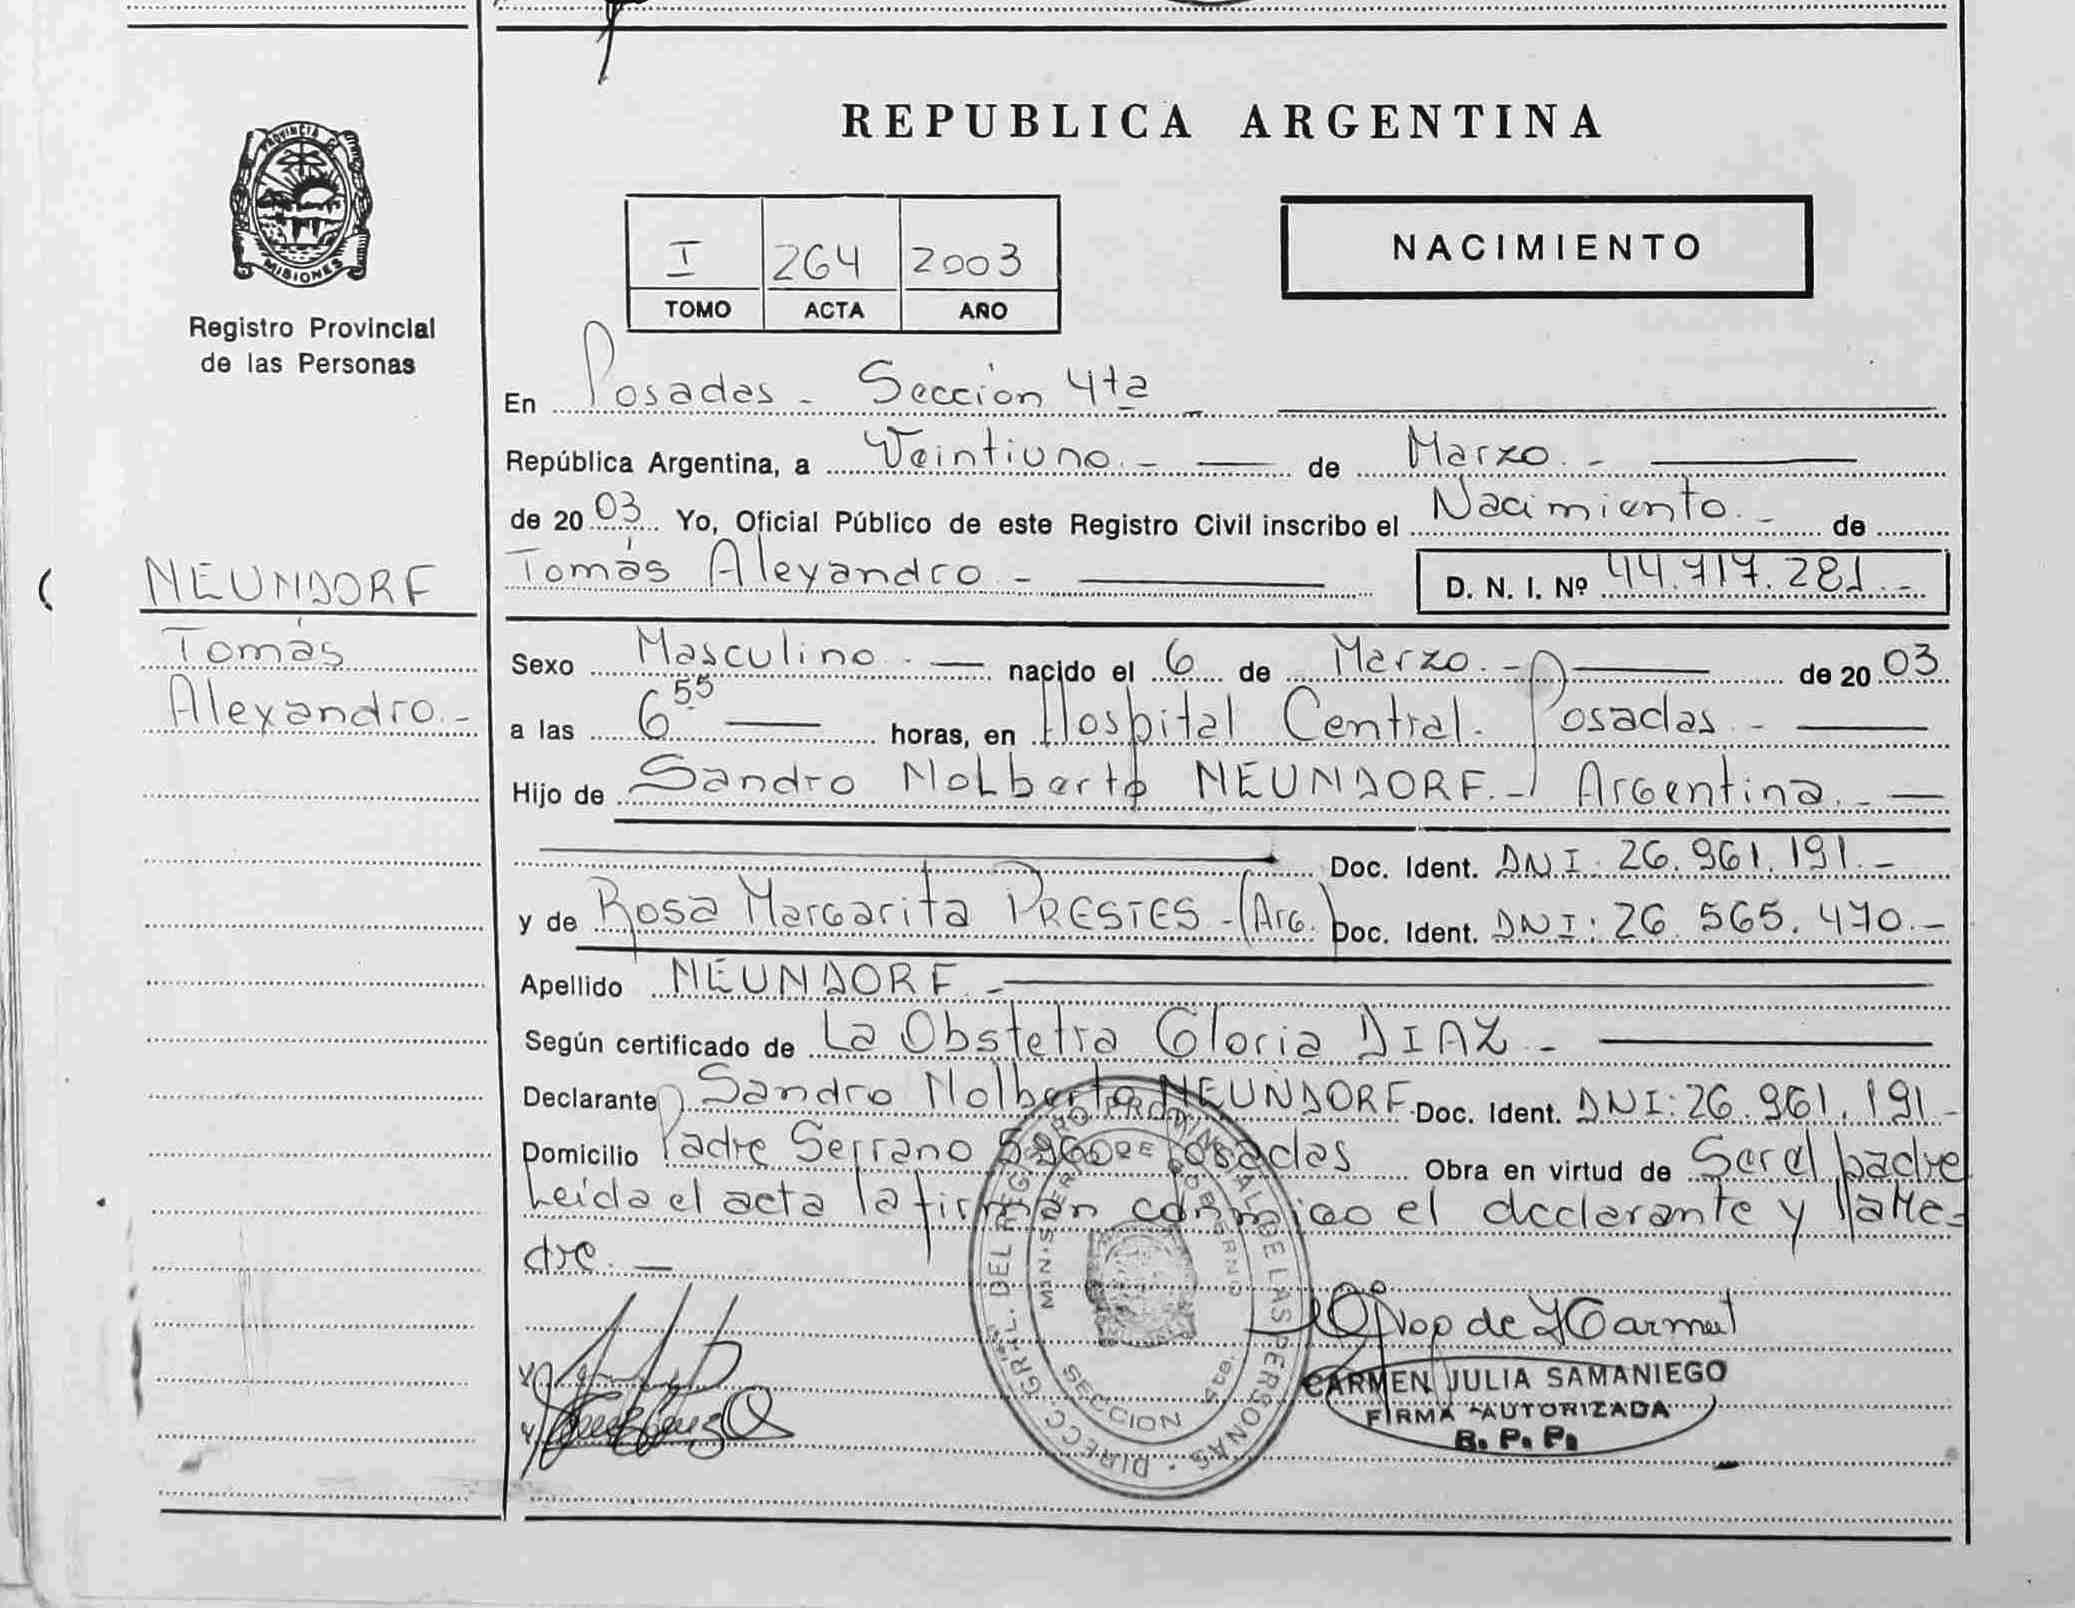 REPUBLICA ARGENTINA
PROVINCIA DE
MISIONES
Registro Provincial
de las Personas
I 264 2003
TOMO ACTA AÑO
NACIMIENTO
En Posadas - Sección 4ta
República Argentina, a Veintiuno.- de Marzo.-
de 2003 Yo, Oficial Público de este Registro Civil inscribo el Nacimiento.- de
Tomás Alexandro - D. N. I. Nº 44.717.281.-
NEUNDORF
Tomás
Alexandro.-
Sexo Masculino.- nacido el 6 de Marzo.- de 2003
a las 6.55 horas, en Hospital Central. Posadas.-
Hijo de Sandro Nolberto NEUNDORF.- Argentina.-
Doc. Ident. DNI: 26.961.191.-
y de Rosa Margarita PRESTES -(Arg.) Doc. Ident. DNI: 26.565.470.-
Apellido NEUNDORF.-
Según certificado de La Obstetra Gloria DIAZ.-
Declarante Sandro Nolberto NEUNDORF. Doc. Ident. DNI: 26.961.191.-
Domicilio Padre Serrano Posadas Obra en virtud de Ser el padre
Leída el acta la firman conmigo el declarante y la Ma=
dre.-
DIRECC. GRAL. DEL REGISTRO PROVINCIAL DE LAS PERSONAS
MINISTERIO DE GOBIERNO
SECCION 4ta.
CARMEN JULIA SAMANIEGO
FIRMA AUTORIZADA
R. P. P.